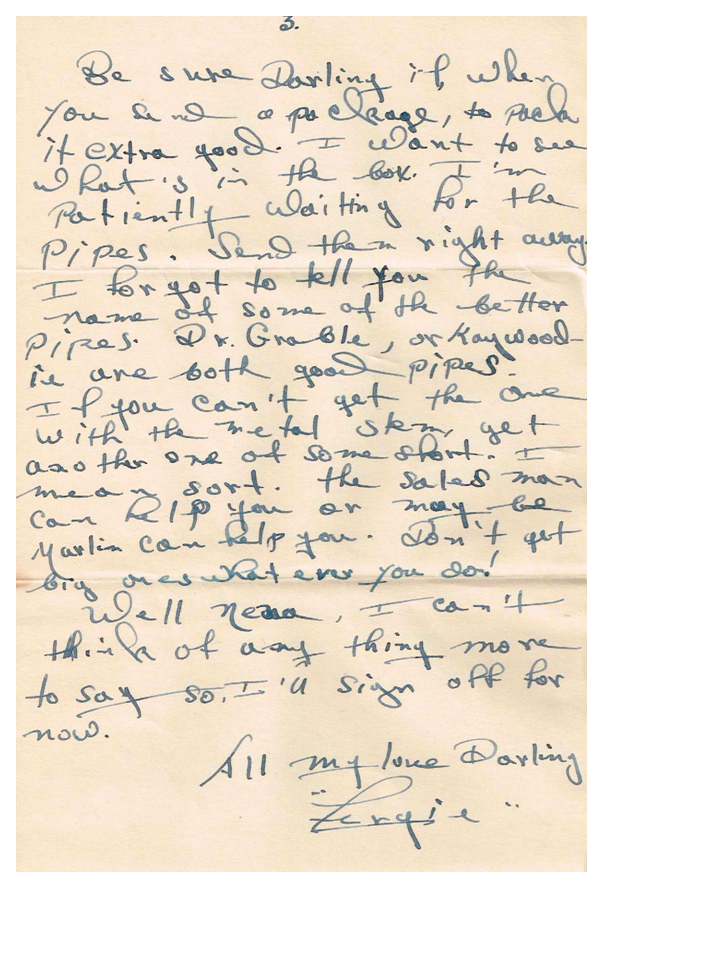 3.
Be sure Darling if, when
you send a package, to pack
it extra good. I want to see
what's in the box. I'm
Patiently waiting for the
Pipes. Send them right away.
I forgot to tell you the
name of some of the better
pipes. Dr. Grable, or Kaywood-
ie are both good pipes.
If you can't get the one
with the metal stem, get
another one of some short. I
mean sort. the sales man
can help you or may be
Marlin can help you. Don't get
big ones what ever you do!
Well Nena, I can't
think of any thing more
to say so, I'll sign off for
now.
All my love Darling
"Fergie"